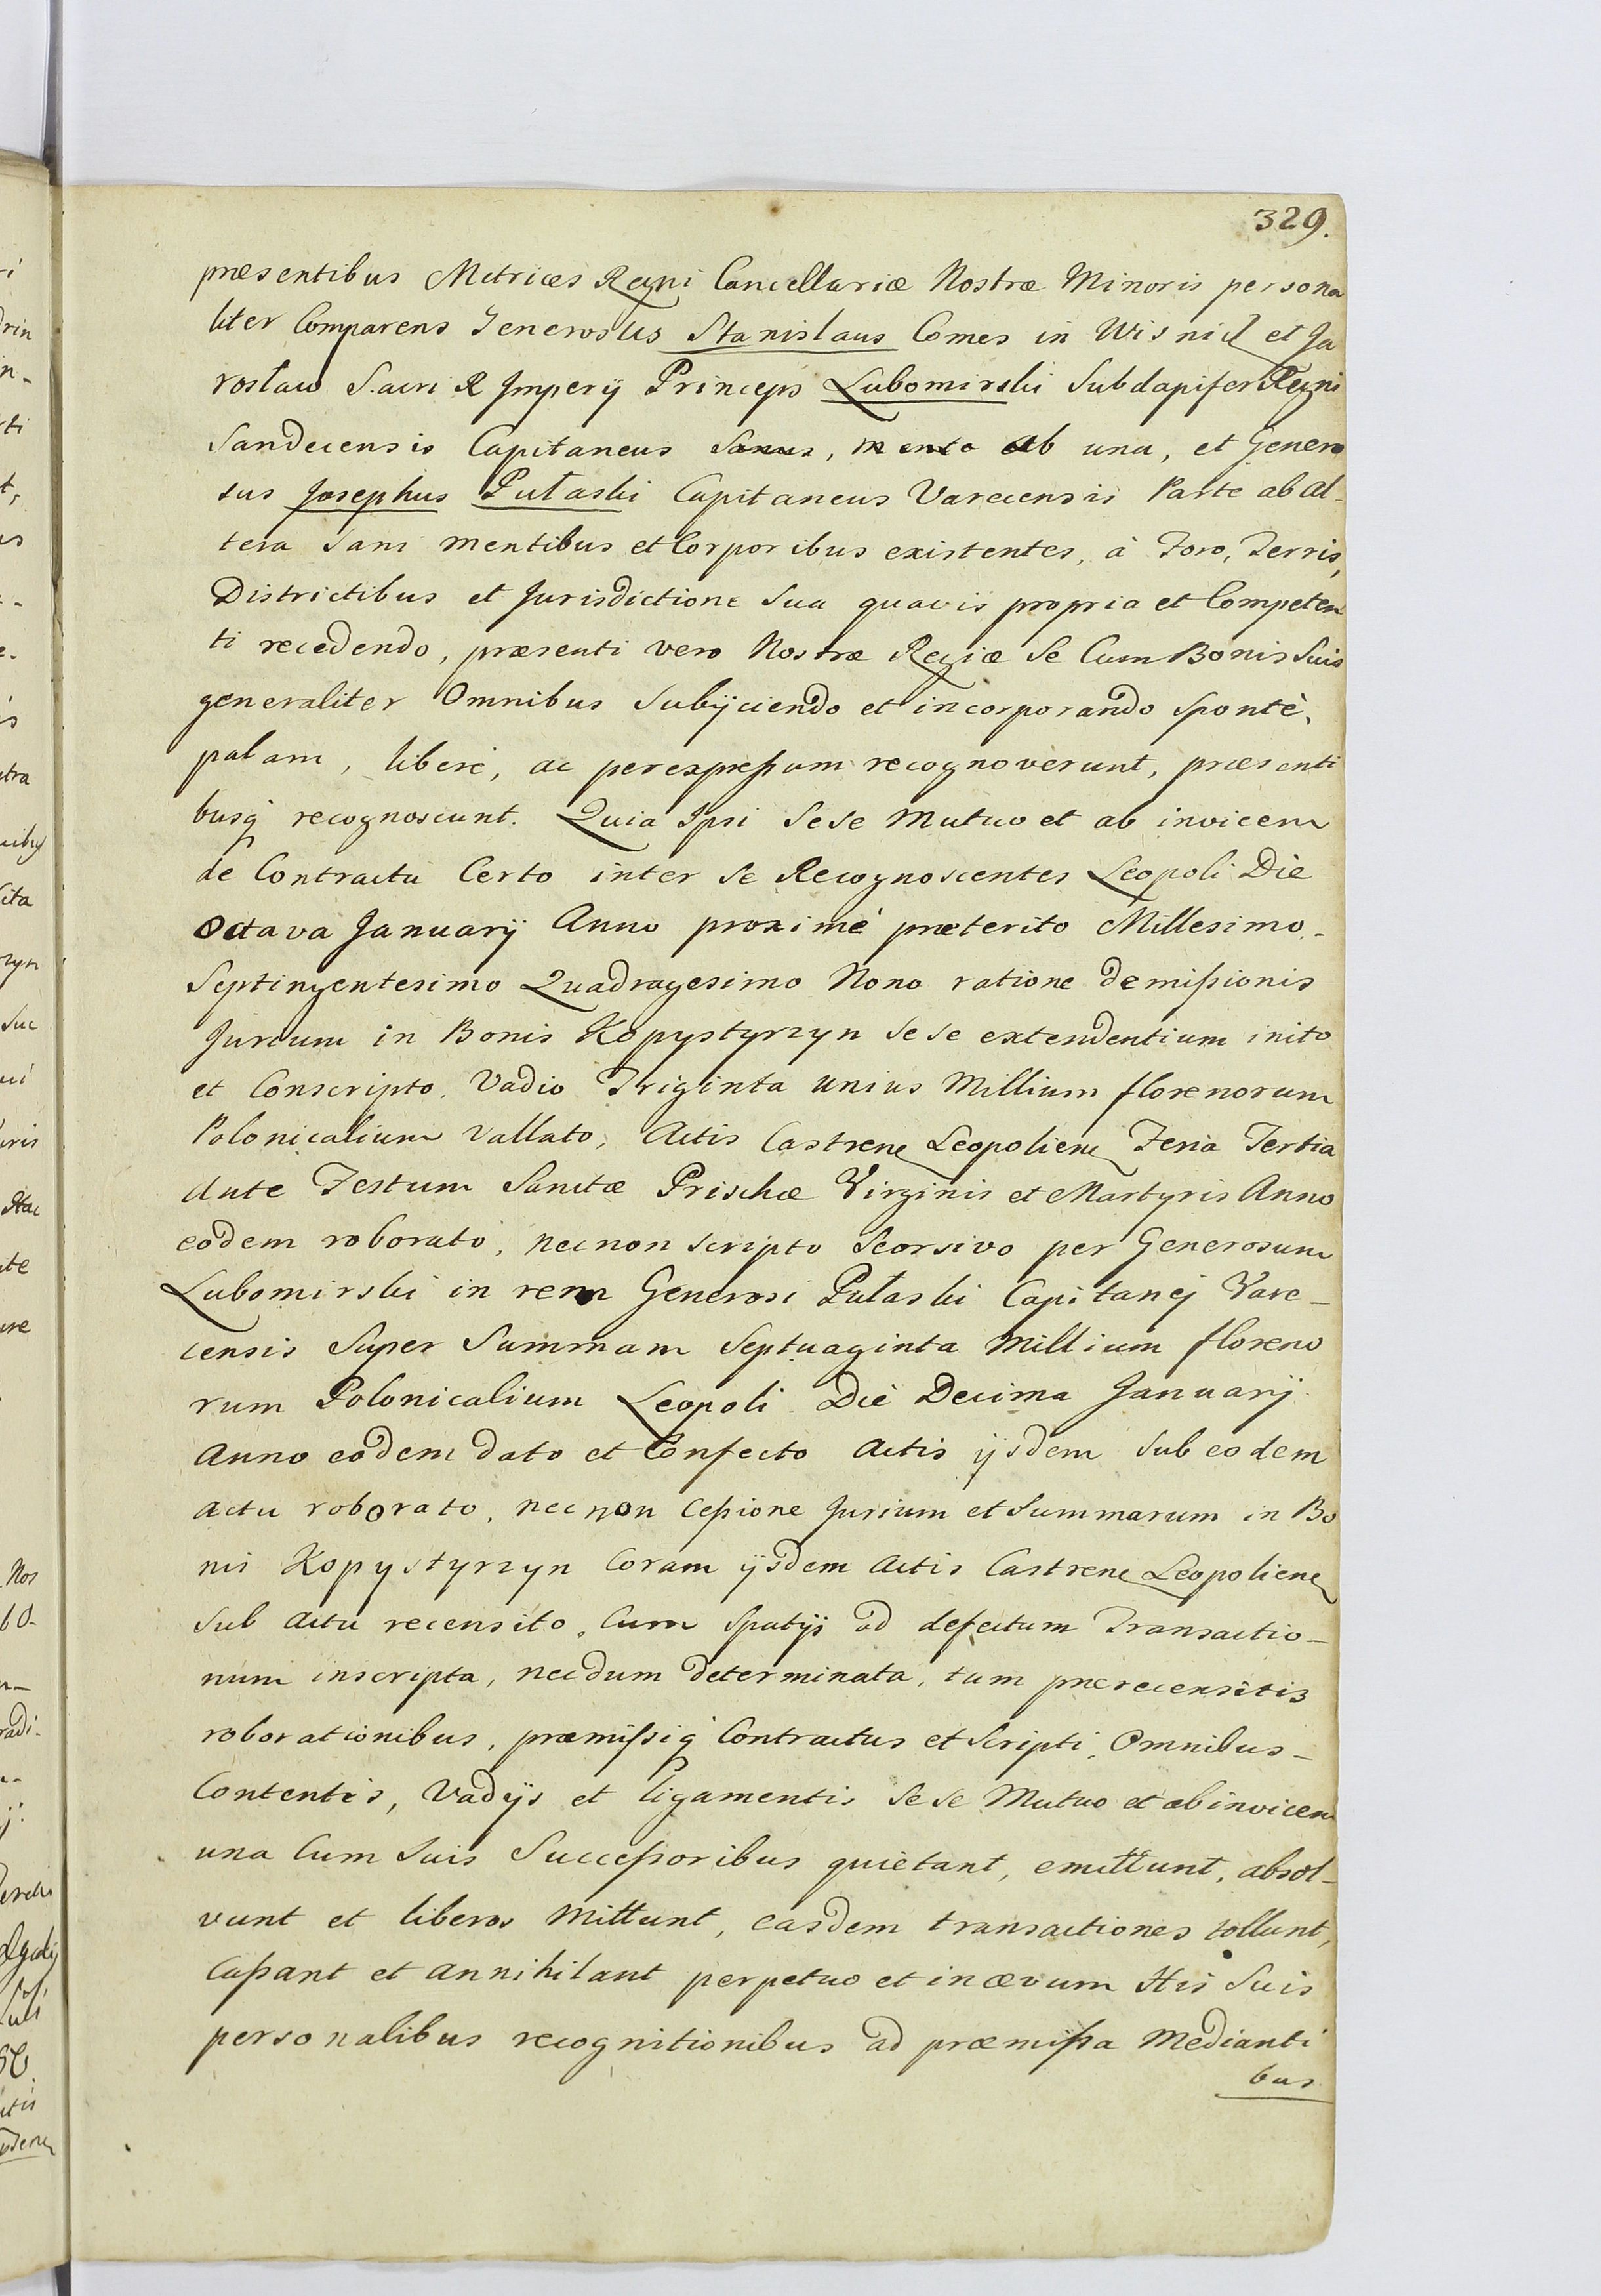 329.
præsentibus Metrices Regni Cancellariæ Nostræ Minoris persona
liter Comparens Generosus Stanislaus Comes in Wisnicz et Ja
rosław Sacri R Imperij Princeps Lubomirski Subdapifer Regni
Sandecensis Capitaneus Sanus, mente ab una, et Genero
sus Josephus Pułaski Capitaneus Varecensis Parte ab al-
tera Sani mentibus et Corporibus existentes, à Foro, Terris,
Districtibus et Jurisdictione Sua quavis propria et Competen
ti recedendo, præsenti vero Nostræ Regiæ Se Cum Bonis Suis
generaliter Omnibus Subijciendo et incorporando Spontè,
palam, liberè, ac perexpreſsum recognoverunt, præsenti
busq recognoscunt. Quia Ipsi Sese Mutuo et ab invicem
de Contractu Certo inter Se Recognoscentes Leopoli Diè
Octava Januarij Anno proximè præterito Millesimo-
Septingentesimo Quadragesimo Nono ratione demiſsionis
Jurium in Bonis Kopystyrzyn Sese extendentium inito
et Conscripto, Vadio Triginta unius Millium florenorum
Polonicalium Vallato, Actis Castren Leopolien Feria Tertia
Ante Festum Sanctæ Prischæ Virginis et Martyris Anno
eodem roborato, necnon scripto Seorsivo per Generosum
Lubomirski in rem Generosi Pułaski Capitanej Vare-
censis Super Summam Septuaginta Millium floreno
rum Polonicalium Leopoli Diè Decima Januarij
Anno eodem dato et Confecto Actis ijsdem Sub eodem
actu roborato, nec non Ceſsione Jurium et Summarum in Bo
nis Kopystyrzyn Coram ijsdem Actis Castren Leopolien
Sub actu recensito, Cum Spatijs ad defectum Transactio-
num inscripta, necdum determinata, tum prærecensitis
roborationibus, præmiſsiq Contractus et Scripti, Omnibus-
Contentis, Vadijs et ligamentis Sese Mutuo et ab invicem
una Cum Suis Succeſsoribus quietant, emittunt, absol-
vunt et liberos Mittunt, easdem transactiones tollunt,
Caſsant et annihilant perpetuo et in ævum His Suis
personalibus recognitionibus ad præmiſsa Medianti
bus